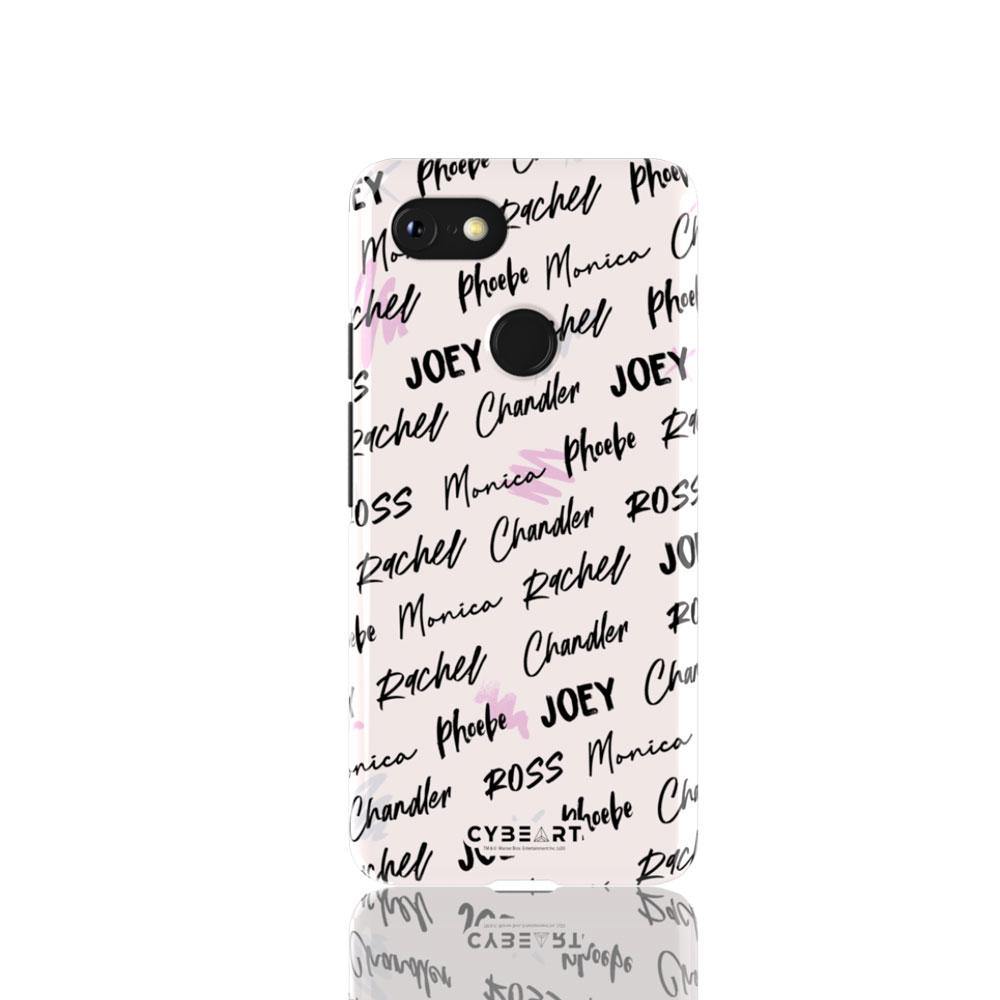 EY Phoebe
Rachel Phoeb
Mo
Phoebe Monica Ch
chel hel Phoeb
JOEY JOEY
S Rachel Chandler
Monica Phoebe Ra
ROSS Chandler ROSS
Rachel Rachel JOE
ebe Monica Chandler RO
Rachel JOEY Chan
Y Phoebe Monica
onica ROSS Cha
Chandler Phoebe
CYBEART
TM & © Warner Bros. Entertainment Inc. (s20)
chel JO Rach